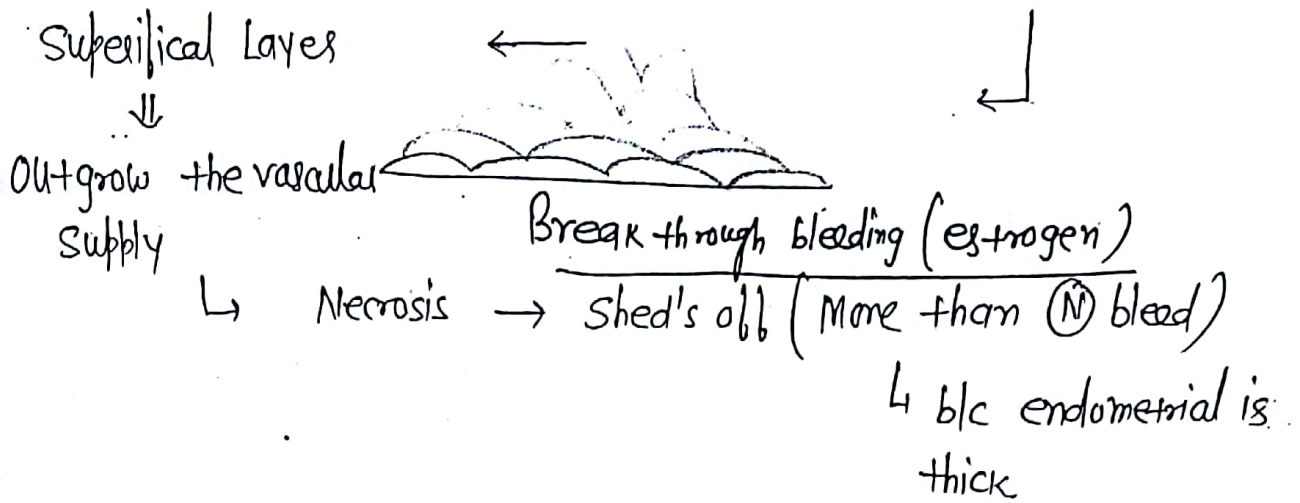 Superifical Layer ←
⇓
Outgrow the vascular
supply
Break through bleeding (estrogen)
↳ Necrosis → Shed's off (More than Ⓝ bleed)
↳ b/c endometrial is
thick